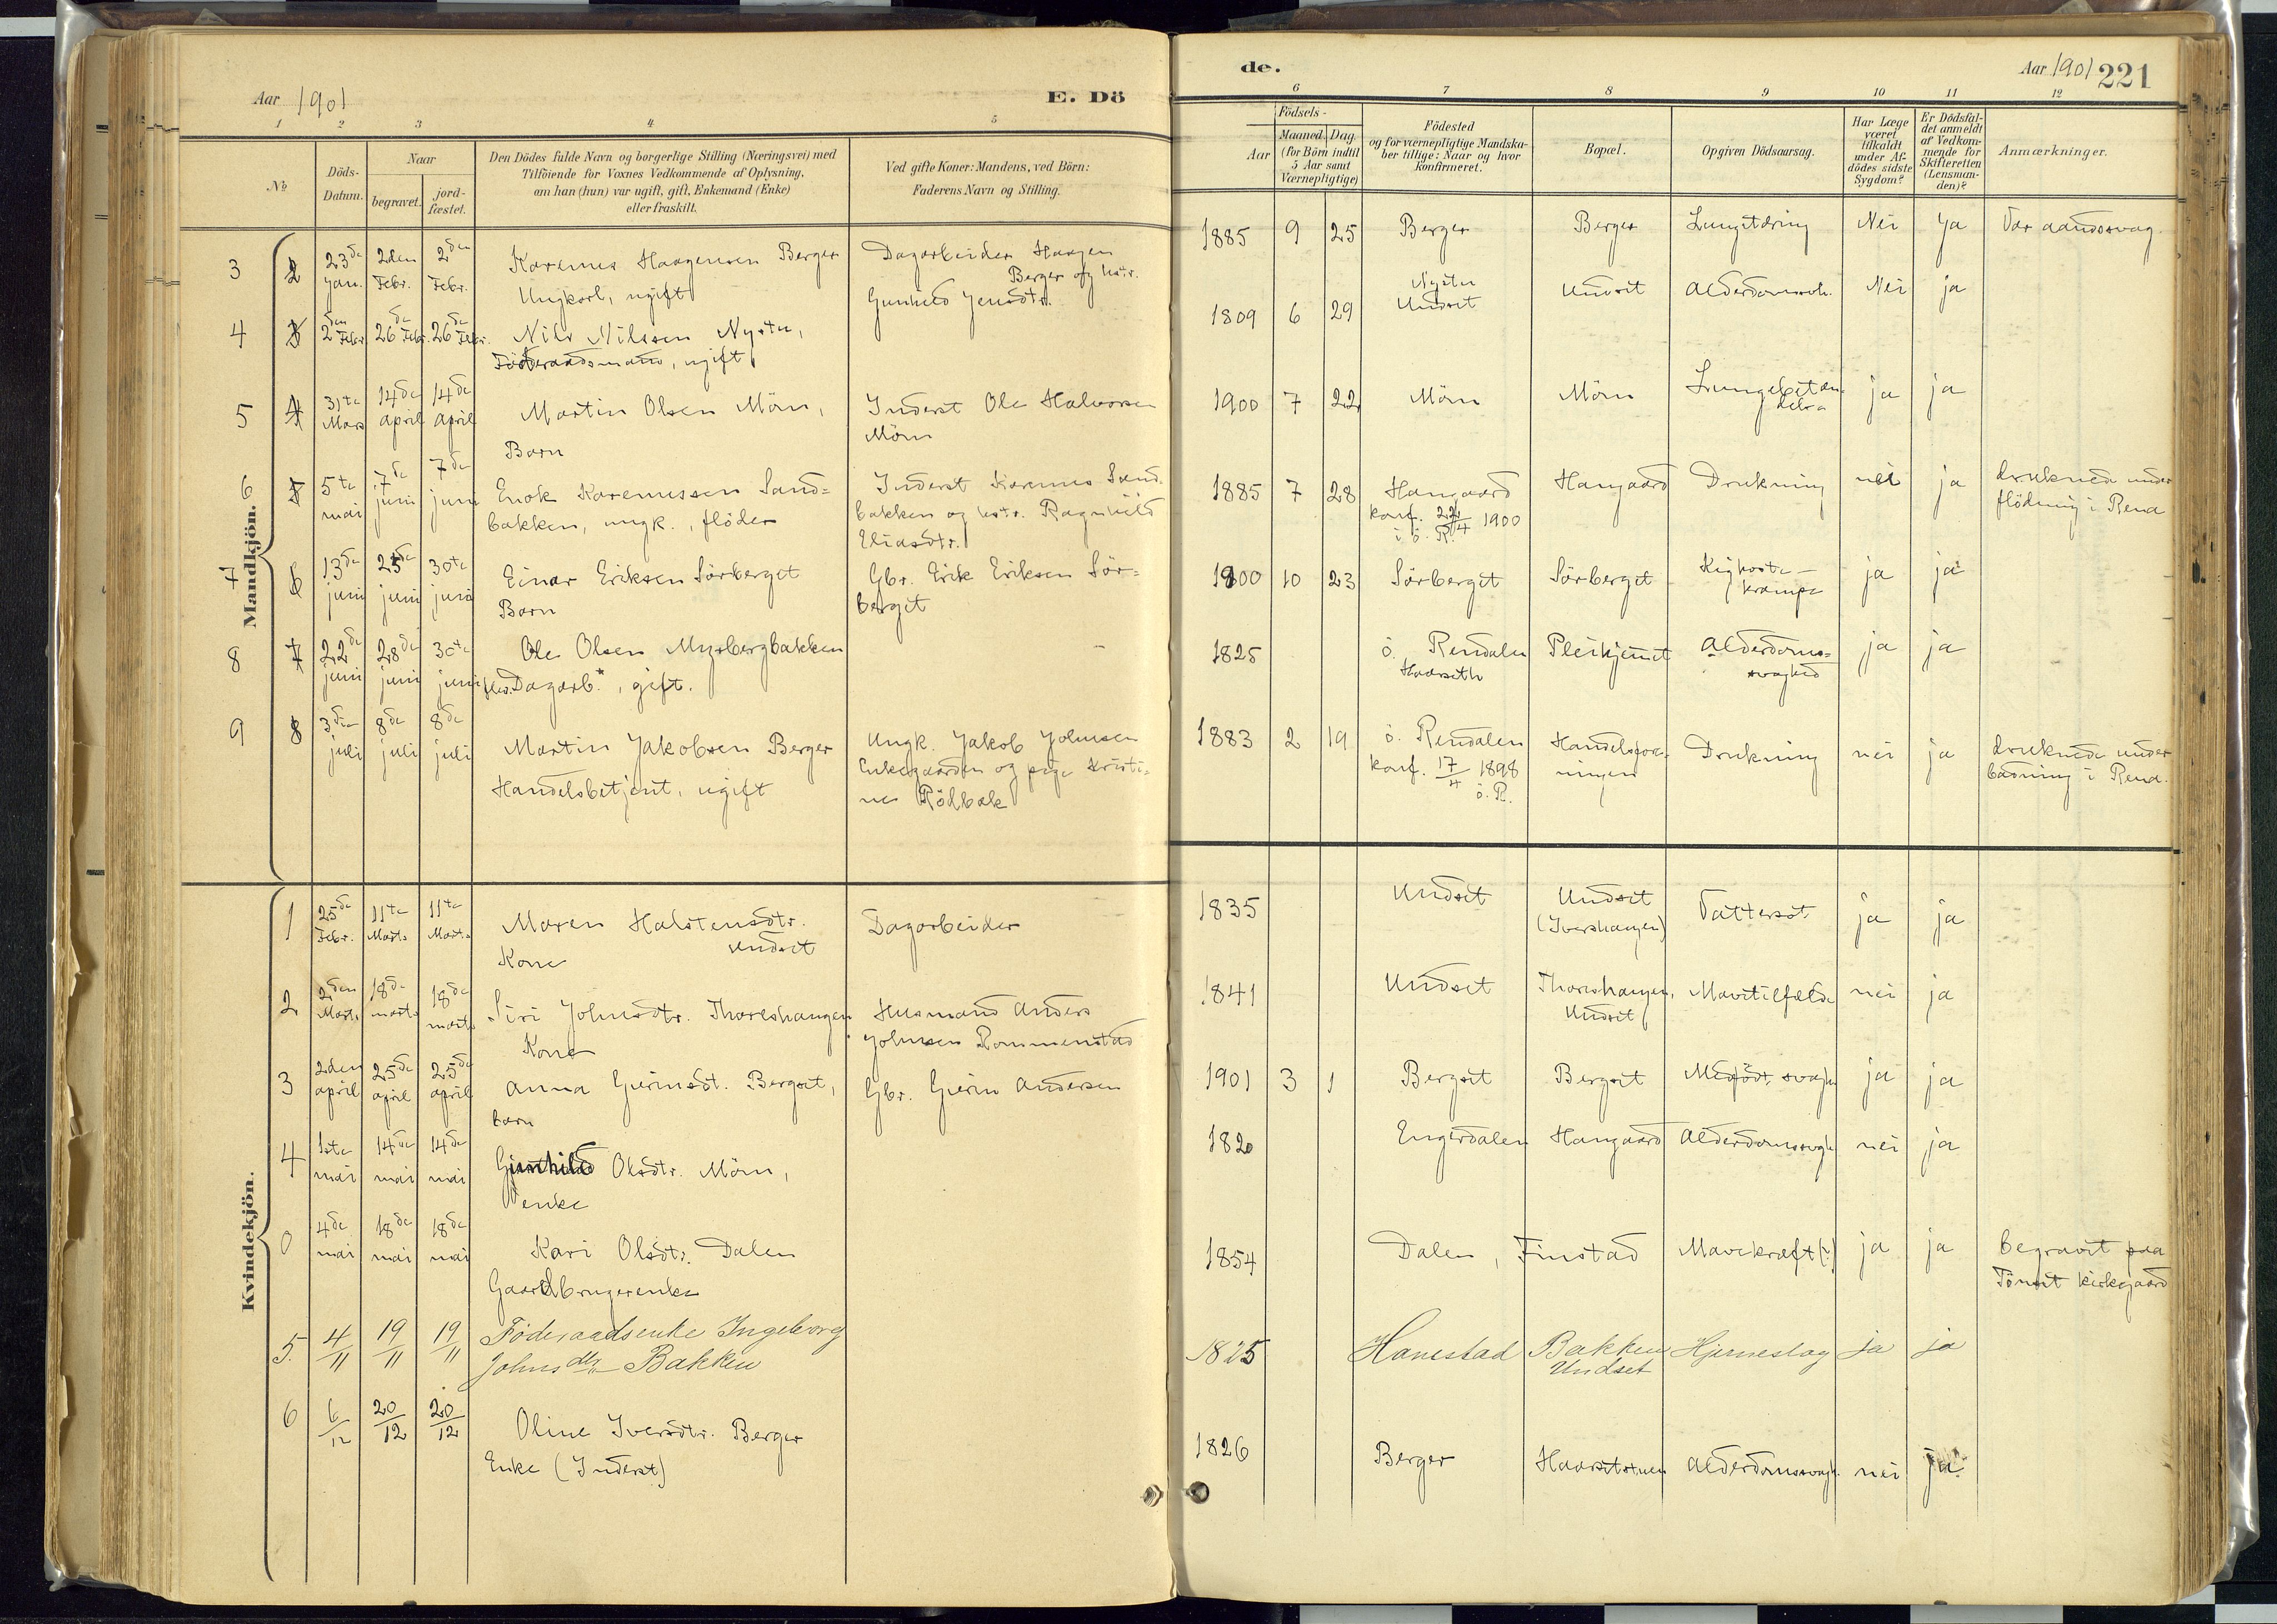 Aar 1901
E. Dö
1 2 3 4 5
№
Döds-
Datum.
Naar
begravet.
jord-
fæstet.
Den Dödes fulde Navn og borgerlige Stilling (Næringsvei) med
Tilföiende for Voxnes Vedkommende af Oplysning,
om han (hun) var ugift, gift, Enkemand (Enke)
eller fraskilt.
Ved gifte Koner: Mandens, ved Börn:
Faderens Navn og Stilling.
Mandkjön.
3 2 23de Jan. 2den Febr. 2den Febr.
Karenus Haagensen Berger
Ungkarl, ugift
Dagarbeider Haagen
Berger og hstr.
Gunhild Jensdtr.
4 3 2den Febr. 26de Febr. 26de Febr.
Nils Nilssen Nystu,
Föderaadsmand, ugift
5 4 31te Mars 14de april 14de april
Martin Olsen Mörn,
Barn
Inderst Ole Halvorsen
Mörn
6 5 5te mai 7de juni 7de juni
Enok Karenussen Sand=
bakken, ungk., flöder
Inderst Karenus Sand-
bakken og hstr. Ragnhild
Eliasdtr.
7 6 13de juni 25de juni 30te juni
Einar Eriksen Sörberget
Barn
Gbr. Erik Eriksen Sör=
berget
8 7 22de juni 28de juni 30te juni
Ole Olsen Myrbergbakken
Dagarb., gift.
9 8 3die juli 8de juli 8de juli
Martin Jakobsen Berger
Handelsbetjent, ugift
Ungk. Jakob Johnsen
Enkegaarden og pige Kristi=
ne Rödbæk
Kvindekjön.
1 25de Febr. 11te Marts 11te Marts
Maren Halstensdtr.
Undset
Kone
Dagarbeider
2 2den Marts 18de marts 18de marts
Siri Johnsdtr. Thoreshaugen
Kone
Husmand Anders
Johnsen Rommenstad
3 2den april 25de april 25de april
Anna Gurinsdt. Bergset,
barn
Gbr. Gurin Andersen
4 1ste mai 14de mai 14de mai
Gunhild Olsdtr. Mörn,
enke
0 4de mai 18de mai 18de mai
Kari Olsdtr. Dalen
Gaardbrugerenke
5. 4/11 19/11 19/11
Föderaadsenke Ingeborg
Johnsdtr Bakken
6 6/12 20/12 20/12
Oline Iversdtr. Berger
Enke (Inderst)
de.
Aar 1901 221
6 7 8 9 10 11 12
Aar
Födsels-
Maaned. Dag.
(for Börn indtil
5 Aar samt
Værnepligtige)
Födested
og for værnepligtige Mandska-
ber tillige: Naar og hvor
Konfirmeret.
Bopæl.
Opgiven Dödsaarsag.
Har Læge
været
tilkaldt
under Af-
dödes sidste
Sygdom?
Er Dödsfal-
det anmeldt
af Vedkom-
mende for
Skifteretten
(Lensman-
den)?
Anmærkninger.
1885 9 25 Berger Berger Lungetæring Nei Ja Var aandssvag.
1809 6 29 Nystu
Undset Undset Alderdomssv. Nei ja
1900 7 22 Mörn Mörn Lungebetæn-
delse ja ja
1885 7 28 Hangaard Hangaard Drukning nei ja druknede under
konf. 22/4 1900 flödning i Rena
i ö. R.
1900 10 23 Sörberget Sörberget Kighoste-
krampe ja ja
1825 ö. Rendalen Pleihjemet Alderdoms=
Haarseth svaghed ja ja
1883 2 19 ö. Rendalen Handelsfore-
ningen Drukning nei ja druknede under
konf. 17/4 1898 badning i Rena.
ö. R.
1835 Undset Undset
(Ivershaugen) Vattersot ja ja
1841 Undset Thoreshaugen,
Undset Mavetilfælde nei ja
1901 3 1 Bergset Bergset Medfödt svagh ja ja
1820 Engerdalen Hangaard Alderdomssvagh nei ja
1854 Dalen, Finstad Mavekræft(?) ja ja Begravet paa
Tönset kirkegaard
1825 Hanestad Bakken
Undset Hjerneslag ja ja
1826 Berger Haarsetstuen Alderdomssvagh. nei ja.